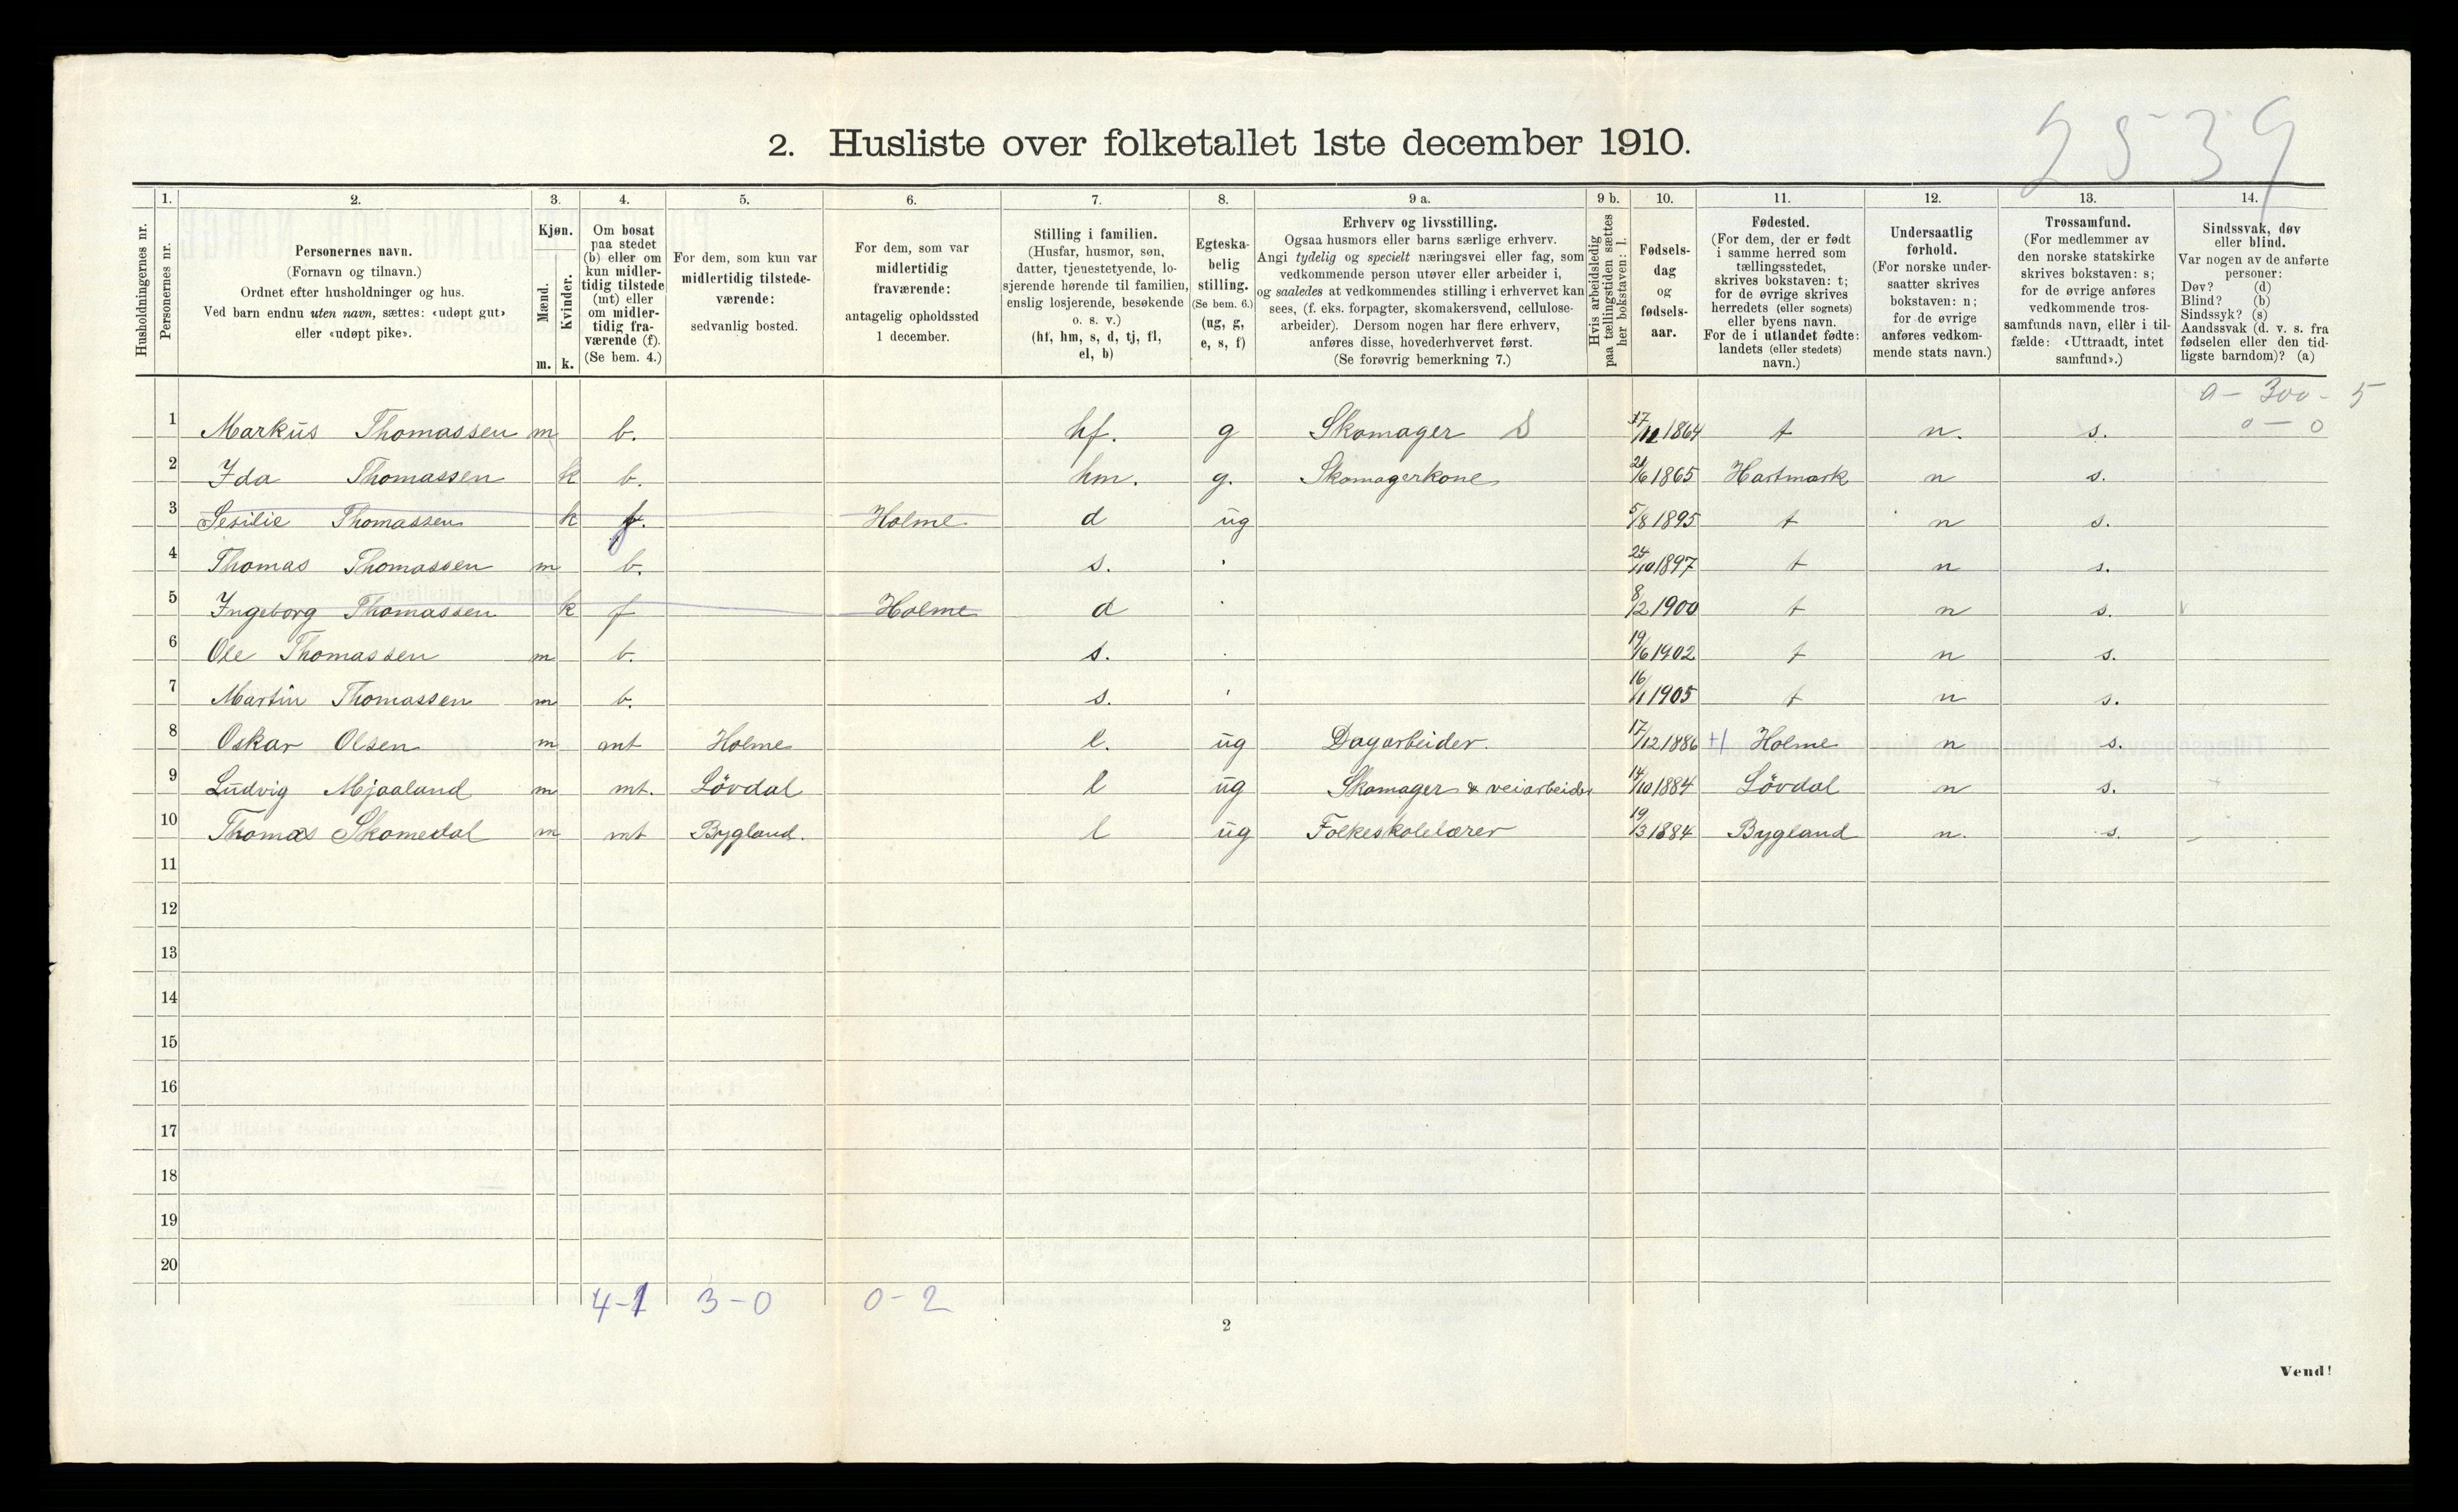 2539
2. Husliste over folketallet 1ste december 1910.
Husholdningernes nr.
1.
Personernes nr.
2.
Personernes navn.
(Fornavn og tilnavn.)
Ordnet efter husholdninger og hus.
Ved barn endnu uten navn, sættes: «udøpt gut»
eller «udøpt pike».
3.
Kjøn.
Mænd.
Kvinder.
m. k.
4.
Om bosat
paa stedet
(b) eller om
kun midler-
tidig tilstede
(mt) eller
om midler-
tidig fra-
værende (f).
(Se bem. 4.)
5.
For dem, som kun var
midlertidig tilstede-
værende:
sedvanlig bosted.
6.
For dem, som var
midlertidig
fraværende:
antagelig opholdssted
1 december.
7.
Stilling i familien.
(Husfar, husmor, søn,
datter, tjenestetyende, lo-
sjerende hørende til familien,
enslig losjerende, besøkende
o. s. v.)
(hf, hm, s, d, tj, fl,
el, b)
8.
Egteska-
belig
stilling.
(Se bem. 6.)
(ug, g,
e, s, f)
9 a.
Erhverv og livsstilling.
Ogsaa husmors eller barns særlige erhverv.
Angi tydelig og specielt næringsvei eller fag, som
vedkommende person utøver eller arbeider i,
og saaledes at vedkommendes stilling i erhvervet kan
sees, (f. eks. forpagter, skomakersvend, cellulose-
arbeider). Dersom nogen har flere erhverv,
anføres disse, hovederhvervet først.
(Se forøvrig bemerkning 7.)
9 b.
Hvis arbeidsledig
paa tællingstiden sættes
her bokstaven: l.
10.
Fødsels-
dag
og
fødsels-
aar.
11.
Fødested.
(For dem, der er født
i samme herred som
tællingsstedet,
skrives bokstaven: t;
for de øvrige skrives
herredets (eller sognets)
eller byens navn.
For de i utlandet fødte:
landets (eller stedets)
navn.)
12.
Undersaatlig
forhold.
(For norske under-
saatter skrives
bokstaven: n;
for de øvrige
anføres vedkom-
mende stats navn.)
13.
Trossamfund.
(For medlemmer av
den norske statskirke
skrives bokstaven: s;
for de øvrige anføres
vedkommende tros-
samfunds navn, eller i til-
fælde: «Uttraadt, intet
samfund».)
14.
Sindssvak, døv
eller blind.
Var nogen av de anførte
personer:
Døv? (d)
Blind? (b)
Sindssyk? (s)
Aandssvak (d. v. s. fra
fødselen eller den tid-
ligste barndom)? (a)
0 - 300 - 5
0 - 0
1 Markus Thomassen m b. hf. g Skomager S 17/11 1864 t n. s.
2 Ida Thomassen k b. hm. g. Skomagerkone 21/6 1865 Hartmark n s.
3 Sesilie Thomassen k f. Holme d ug 5/8 1895 t n s.
4 Thomas Thomassen m b. s. 24/10 1897 t n s.
5 Ingeborg Thomassen k f Holme d 8/2 1900 t n s.
6 Ole Thomassen m b. s. 19/6 1902 t n s.
7 Martin Thomassen m b. s. 16/1 1905 t n s.
8 Oskar Olsen m mt Holme l. ug Dagarbeider. 17/12 1886 Holme n s.
9 Ludvig Mjaaland m mt. Lövdal l ug Skomager & veiarbeider 14/10 1884 Lövdal n s.
10 Thomas Skomedal m mt Bygland. l ug Folkeskolelærer 19/3 1884 Bygland n. s.
11
12
13
14
15
16
17
18
19
20
4-1 3-0 0-2
2
Vend!